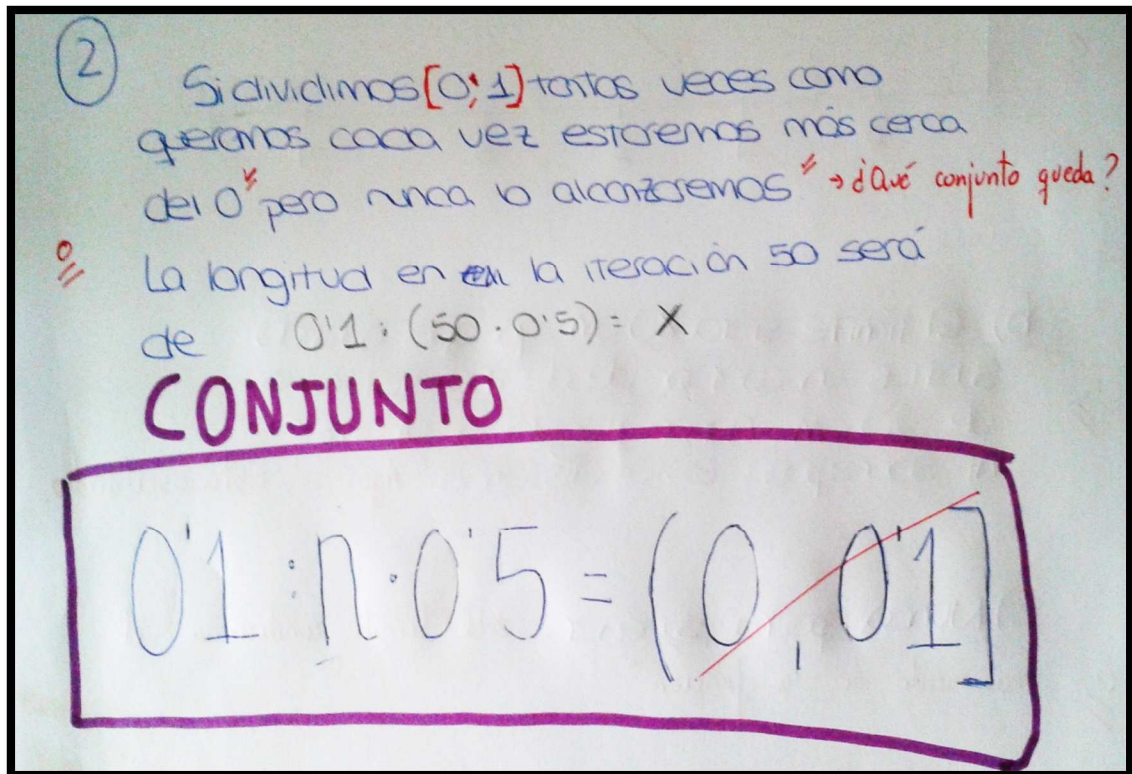 2
Si dividimos [0; 1] tantas veces como
queramos cada vez estaremos más cerca
del 0 pero nunca lo alcanzaremos → ¿Qué conjunto queda?
0
La longitud en la iteración 50 será
de 0'1 : (50 · 0'5) = X
CONJUNTO
0'1 : n · 0'5 = (0, 0'1]